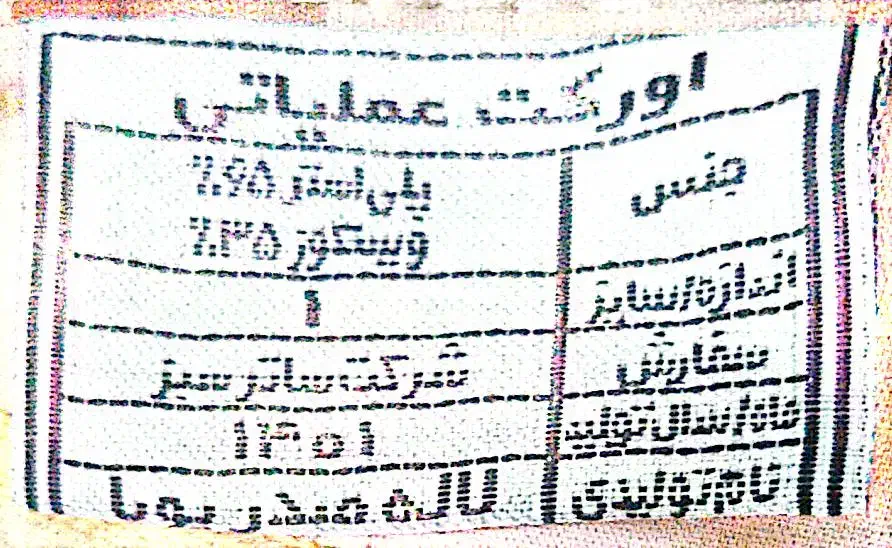 اورکت عملیاتی
جنس
پلی استر ۶۵٪
ویسکوز ۳۵٪
اندازه/سایز
۱
سفارش
شرکت ساتر سبز
ماه/سال تولید
۱۴۰۱
نام تولیدی